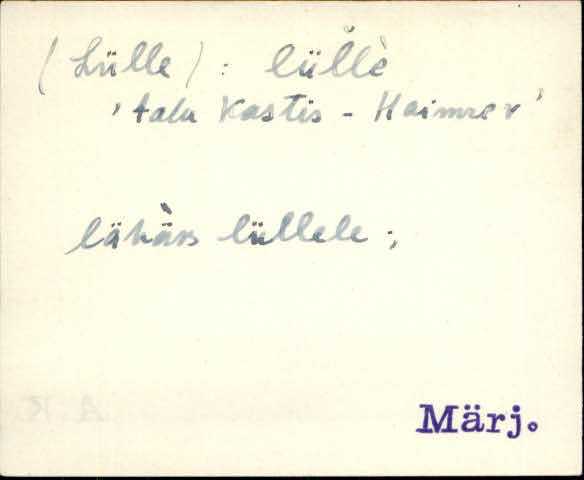 (Lülle) : lülle`
'talu Kastis - Haimrev'
lähän lüllele ;
Märj.